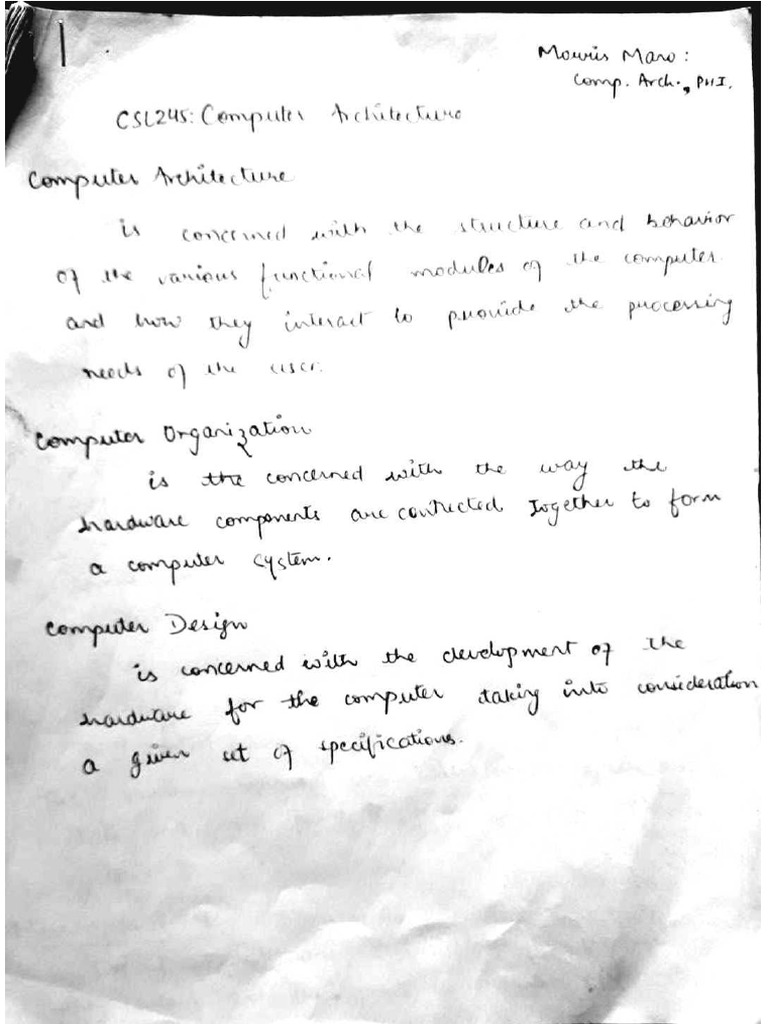 Morris Mano:
Comp. Arch., PHI.
CSL245: Computer Architecture
Computer Architecture
is concerned with the structure and behavior
of the various functional modules of the computer
and how they interact to provide the processing
needs of the user.
Computer Organization
is the concerned with the way the
hardware components are contected together to form
a computer system.
Computer Design
is concerned with the development of the
hardware for the computer taking into consideration
a given set of specifications.